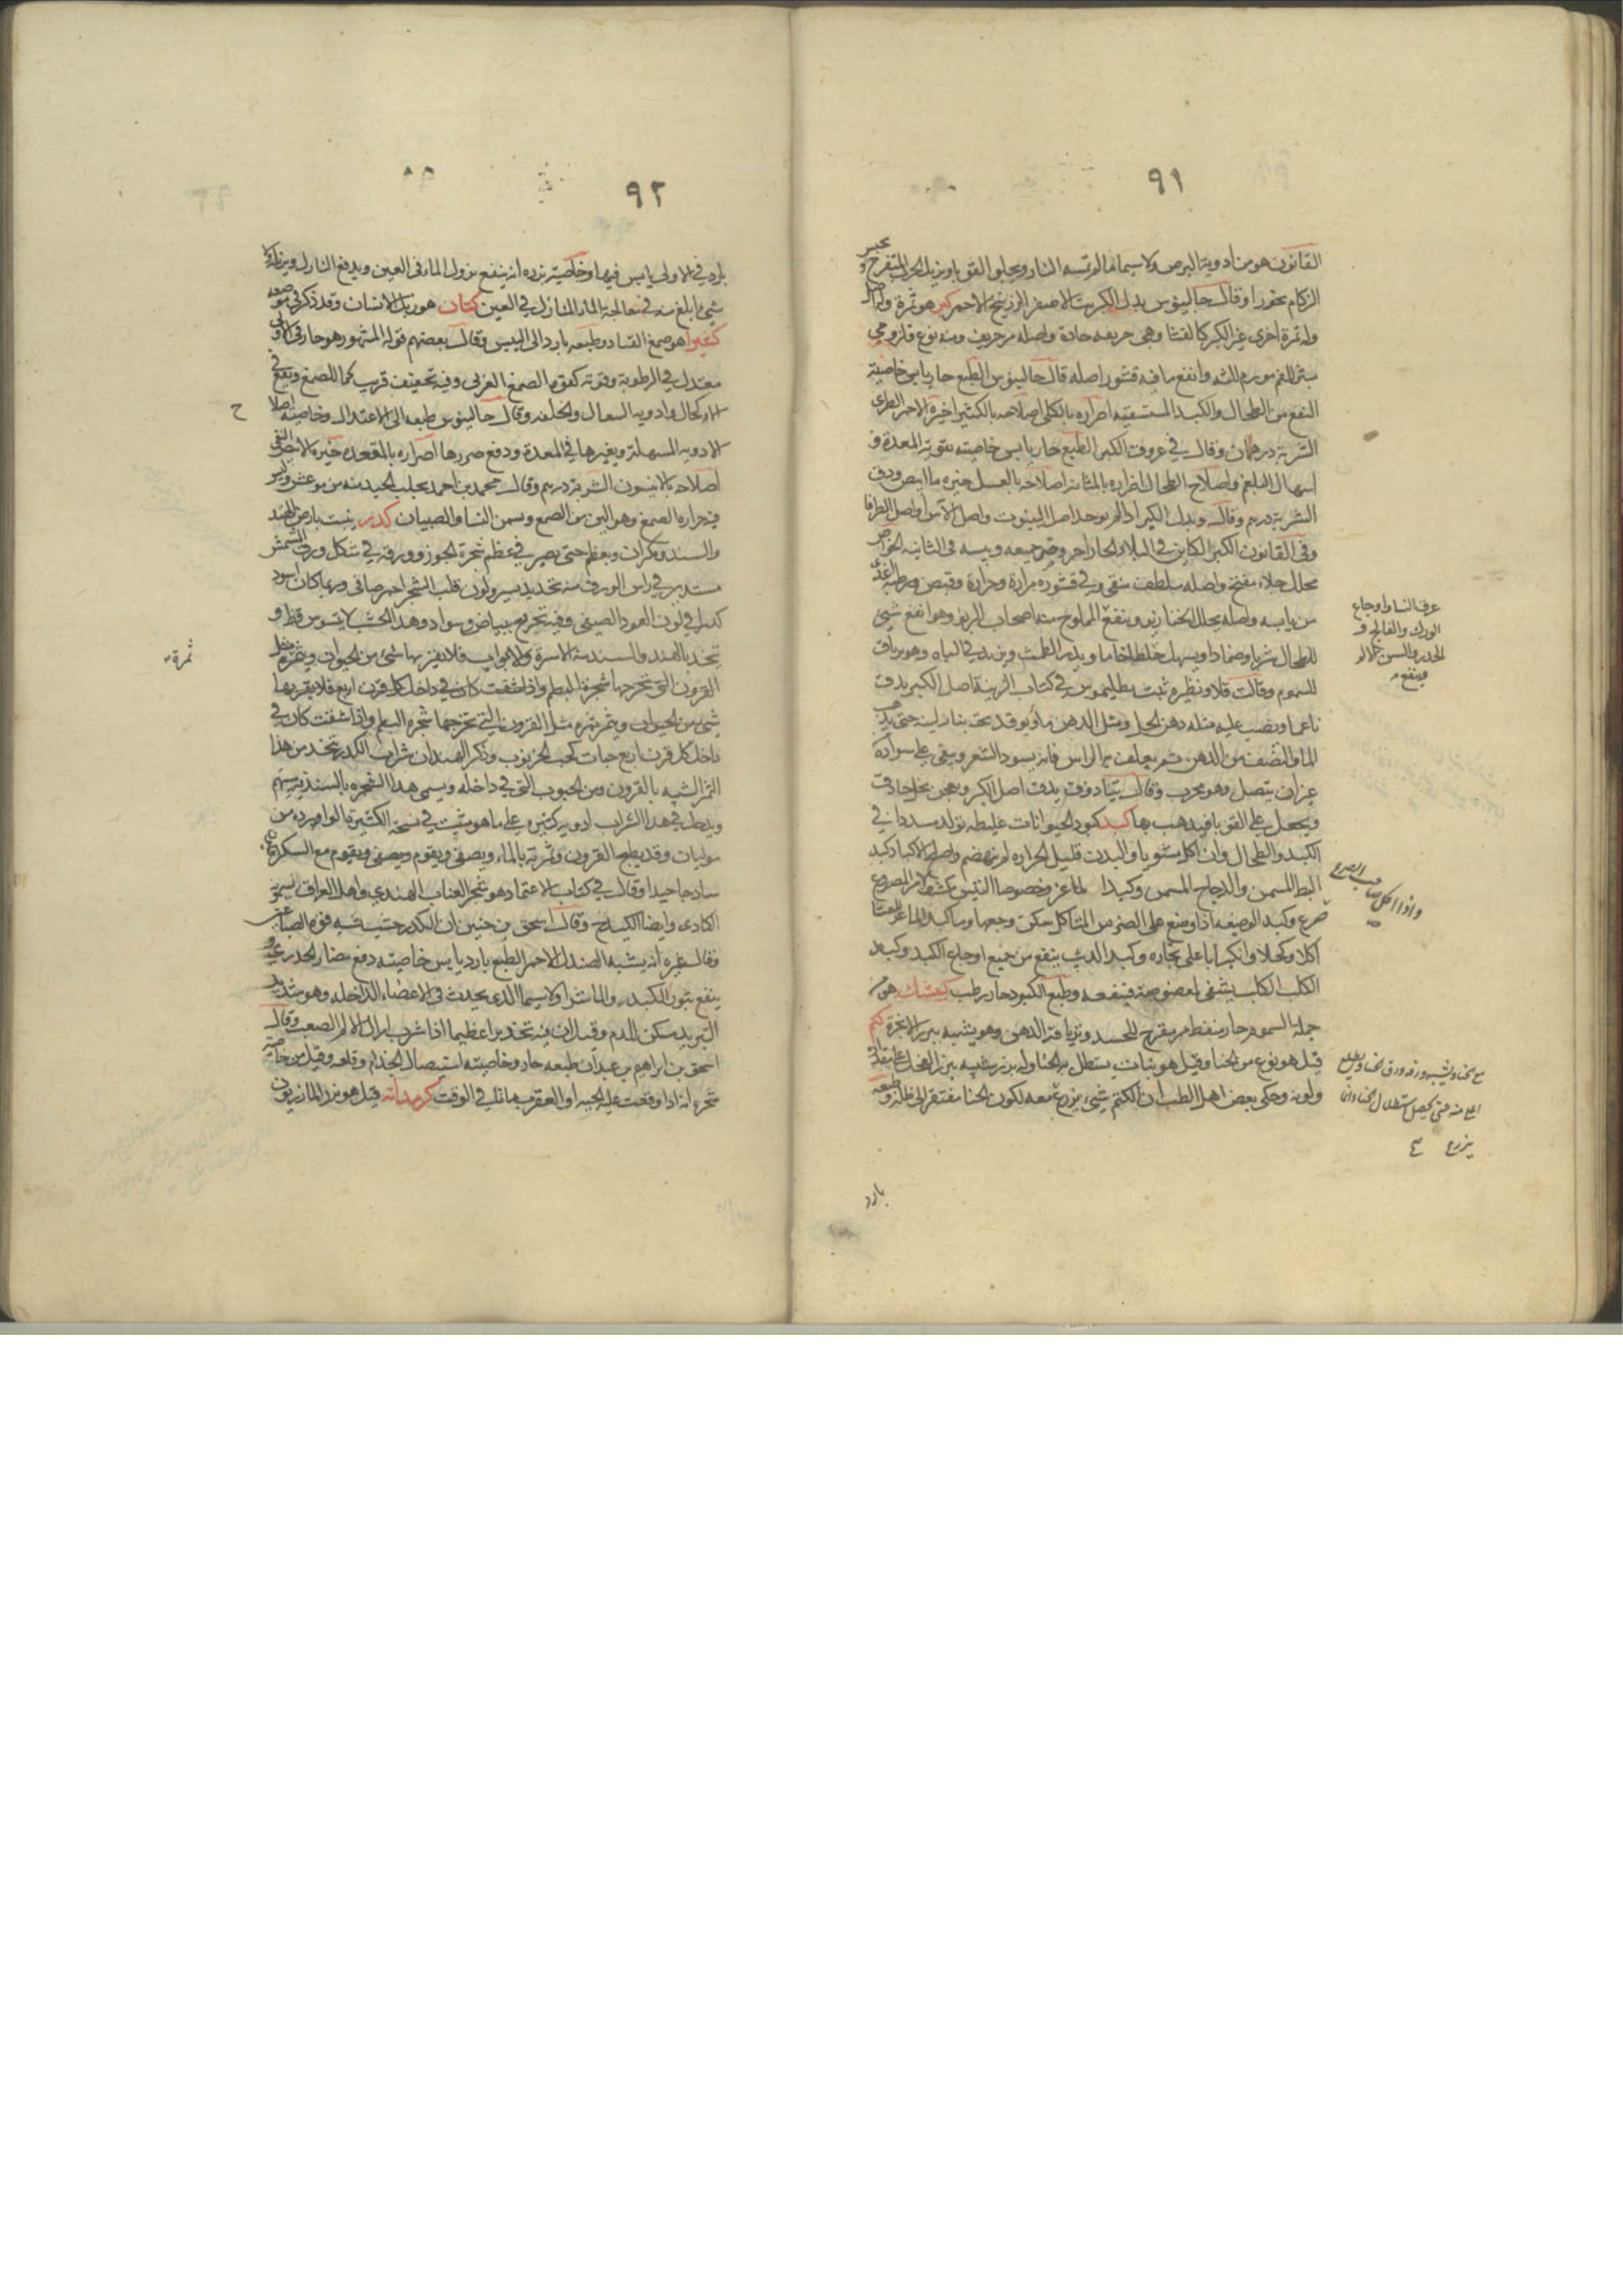 ٩١
القانون هو من ادوية البرص ولا سيما ما لم تمسه النار ويجلو القوبا ويزيل الجرب المتقرح و
الزكام بخورا وقال جالينوس بدل الكبريت الاصفر الزرنيخ الاحمر كبر هو ثمرة وله اصل
وله ثمرة اخرى غير الكبر كالقثا وهي حريفه حادة واصله مر حريف ومنه نوع قلزومي
يبثر الفم مورم للثه وانفع ما فيه قشور اصله قال جالينوس الطبع حار يابس خاصيته
النفع من الطحال والكبد المستسقيه اضراره بالكلى اصلاحه بالكثيرا خيره الاحمر الطرى
الشربة درهمان وقال في عروق الكبر الطبع حار يابس خاصيته تقوية المعدة و
اسهال البلغم واصلاح الطحال اضراره بالمثانه اصلاحه بالعسل خيره ما ابيض ودق
الشربة درهم وقال وبدل الكبر اذا لم يوجد اصل الينبوت واصل الآس او اصل الطرفا
وفي القانون الكبر الكاين في البلاد الحارة احر وحر جميعه ويبسه في الثانيه الخواص
محلل جلاء مفتح واصله ملطف منقي وفي قشوره مرارة وحرارة وقبض ورطبه اغذى
من يابسه واصله يحلل الخنازير وينفع المملوح منه اصحاب الربو وهو انفع شيء
للطحال شربا وضمادا ويسهل خلطا خاما ويدر الطمث ويزيد في الباه وهو ترياق
للسموم وقالت قلاونظيره بنت بطليموس في كتاب الزينة اصل الكبر يدق
ناعما ويصب عليه مثله دهن الحل ومثل الدهن ماء ويوقد تحته بنار لينة حتى يذهب
الما والنصف من الدهن ثم يغلف به الراس فانه يسود الشعر ويبقى على سواده
غير ان يتصل وهو مجرب وقال بياذوق يدق اصل الكبر ويعجن بخل حاذق
ويجعل على القوبا فيذهب بها كبد كبود الحيوانات غليظه تولد سددا في
الكبد والطحال وان اكل مشويا والبدن قليل الحراره لم ينهضم واصلح الاكباد كبد
البط المسمن والدجاج المسمن وكبد الماعز وخصوصا التيس يكشف امر المصروع
صرع وكبد الوصيفه اذا وضع على الضرس المتاكل سكن وجعها وماء كبد الماعز للعشا
اكلا وكحلا وانكبابا على بخاره وكبد الذئب ينفع من جميع اوجاع الكبد وكبد
الكلب الكلب يشفى لعضوضه فينفعه وطبع الكبود حار رطب كبيشك هو من
جملة السموم حار منفط مر مقرح للجسد وترياقه الدهن وهو يشبه ببزر الانجرة كتم
قيل هو نوع من الحنا وقيل هو نبات يستظل به الحنا وله بزر شبيه ببزر الفجل
ولونه وحكى بعض اهل الطب ان الكتم شيء يزرع معه لكون الحنا مفتقر الى ظله وطبعه
عرق النسا واوجاع
الورك والفالج و
الخدر والسن
وينفع
واذا اكل صاحب الصرع
يزرع
بارد
٩٢
بارد في الاولى يابس فيها وخاصيته بزره انه ينفع نزول الماء في العين ويدفع النازل
شيء ابلغ منه في معالجة الماء النازل في العين كتان هو زبل الانسان وقد ذكر في موضعه
كثيرا هو صمغ القتاد وطبعه بارد الى اليبس وقال بعضهم قوله المشهور هو حار في الاولى
معتدل في الرطوبة وقوته كقوة الصمغ العربي وفيه تجفيف قريب كما للصمغ ويقع في
الاكحال وادويه السعال والحلقه وقال جالينوس طبعه الى الاعتدال وخاصيته اصلاح
الادويه المسهلة وبغيرها في المعدة ودفع ضررها اضراره بالمقعده خيره الابيض النقي
اصلاحه بالانيسون الشربة درهم وقال محمد بن احمد يجلب الجيد منه من مرعش وليس
فيه حراره الصمغ وهو الين من الصمغ ويسمن النسا والصبيان كدر ينبت بارض الهند
والسند ومكران ويعظم حتى يصير في عظم شجرة الجوز وورقه في شكل ورق المشمش
مستدير في راس الورق منه تحديد يسير ولون قلب الشجر احمر صافي وربما كان اسود
كدرا في لون العود الصيني وفيه تجزيع ببياض وسواد وهذا الخشب لا يتسوس قط و
يتخذ بالهند والسند منه الاسرة والابواب فلا يقربها شئ من الحيوان ويثمر مثل
القرون التي تخرجها شجرة البطم واذا شقت كان في داخل كل قرن اربع فلا يقربها
شئ من الحيوان ويثمر ثمره مثل القرون التي تخرجها شجره البطم واذا شقت كان في
داخل كل قرن اربع حبات كحب الخرنوب وذكر الهند ان شراب الكدر يتخذ من هذا
الثمر الشبيه بالقرون ومن الحبوب التي في داخله ويسمى هذا الشجره بالسند
ويدخل في هذا الشراب ادويه كثيره على ما هو مثبت في نسخة الكثيرة
وقد يطبخ القرون وثمرته بالماء ويصفى ويقوم ويصفى ويقوم مع السكر
ساذجا جيدا وقال في كتاب الاعتماد هو شجر العناب الهندي واهل العراق يسمونه
الكادى وايضا الكيدح وقال اسحق بن حنين ان الكدر خشب شبه فوه الصباغين
وقال غيره انه يشبه الصندل الاحمر الطبع بارد يابس خاصيته دفع مضار الجدري
ينفع بثور الكبد والماشرا ولا سيما الذي يحدث في الاعضاء الداخله وهو شديد
التبريد مسكن للدم وقيل ان فيه تخديرا عظيما اذا شرب ازال الالم الصعب وقال
اسحق بن ابراهيم بن عبدان طبعه حار وخاصيته استيصال الجذام وقلعه وقيل من خاصية
شجره انه اذا وقعت عليه الحية او العقرب ماتا في الوقت كرمدانه قيل هو بزر المازريون
ح
ثمرة